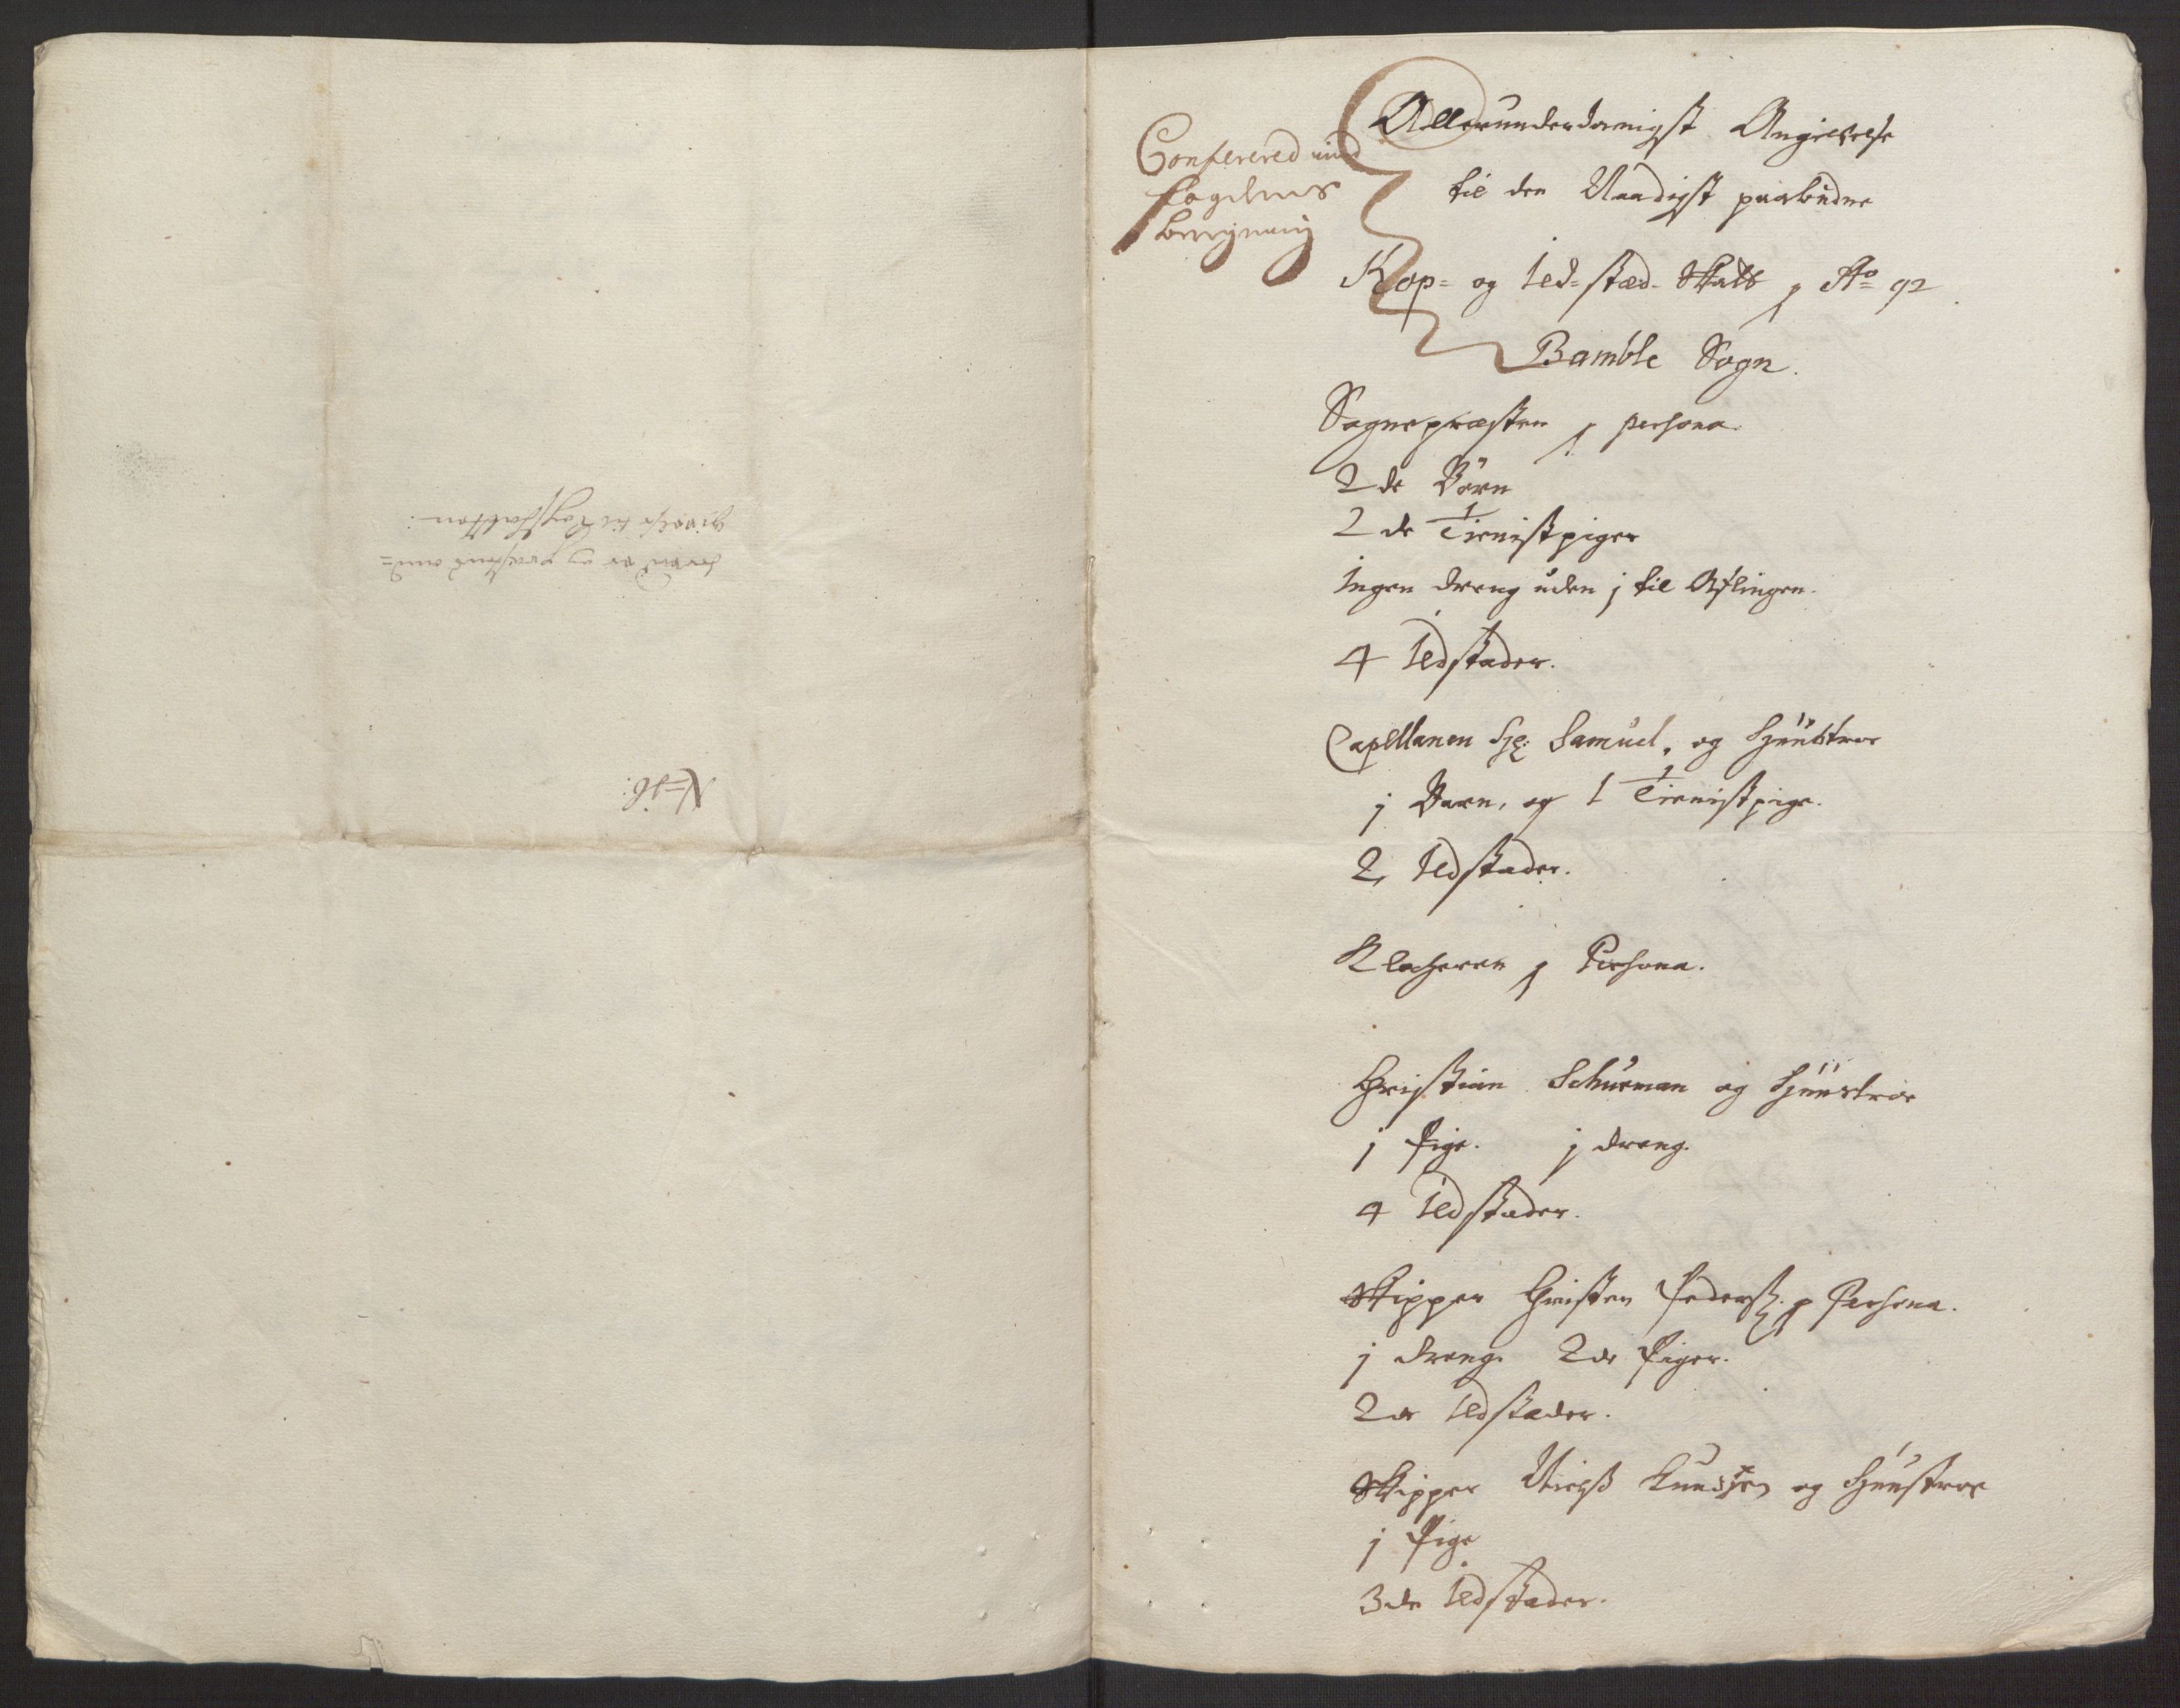 giwelse til Copskatten:
N=16:
Conferered med
fogdens
beregning
Allerunderdanigst Angivelse
til den Naadigst paabudne
Kop= og Ild=stæd-Skatt p Ao 92
Bamble Sogn.
Sognepræsten j persona
2 de Børn
2 de Tienistpiger
Ingen dreng uden j til Aflingen.
4 Ildstæder.
Capellanen Hr: Samuel, og Hüüstroe
j Barn, og 1 Tienistpige.
2 Ildstæder.
Klocheren j Persona.
Christian Schurman og Hüüstroe
j Pige. j dreng.
4 Ildstæder.
Skipper Christen Pederss: j Persona.
j dreng. 2de Piger.
2de Ildstæder.
Skipper Nielss Knudssen og Huustroe
j Pige
3de Ildstæder.